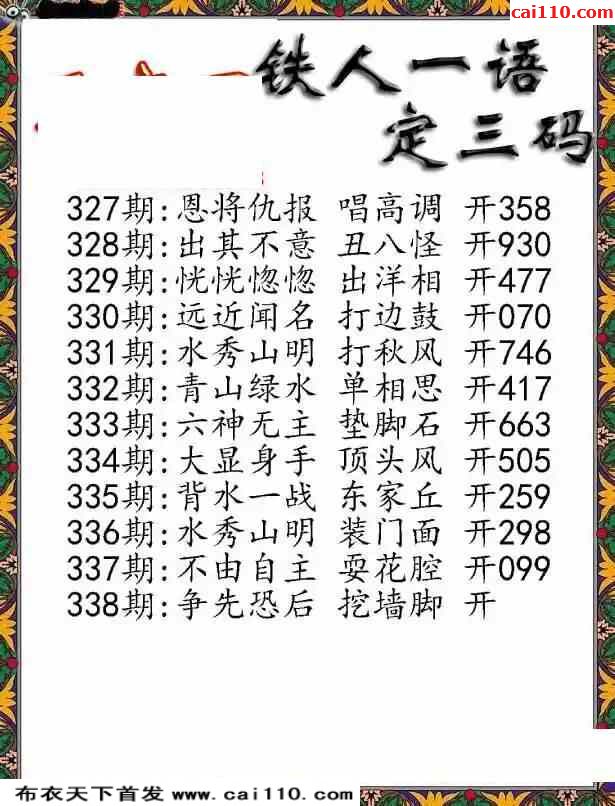 彩吧助手
cai110.com
铁人一语
定三码
327期:恩将仇报 唱高调 开358
328期:出其不意 丑八怪 开930
329期:恍恍惚惚 出洋相 开477
330期:远近闻名 打边鼓 开070
331期:水秀山明 打秋风 开746
332期:青山绿水 单相思 开417
333期:六神无主 垫脚石 开663
334期:大显身手 顶头风 开505
335期:背水一战 东家丘 开259
336期:水秀山明 装门面 开298
337期:不由自主 耍花腔 开099
338期:争先恐后 挖墙脚 开
布衣天下首发 www.cai110.com